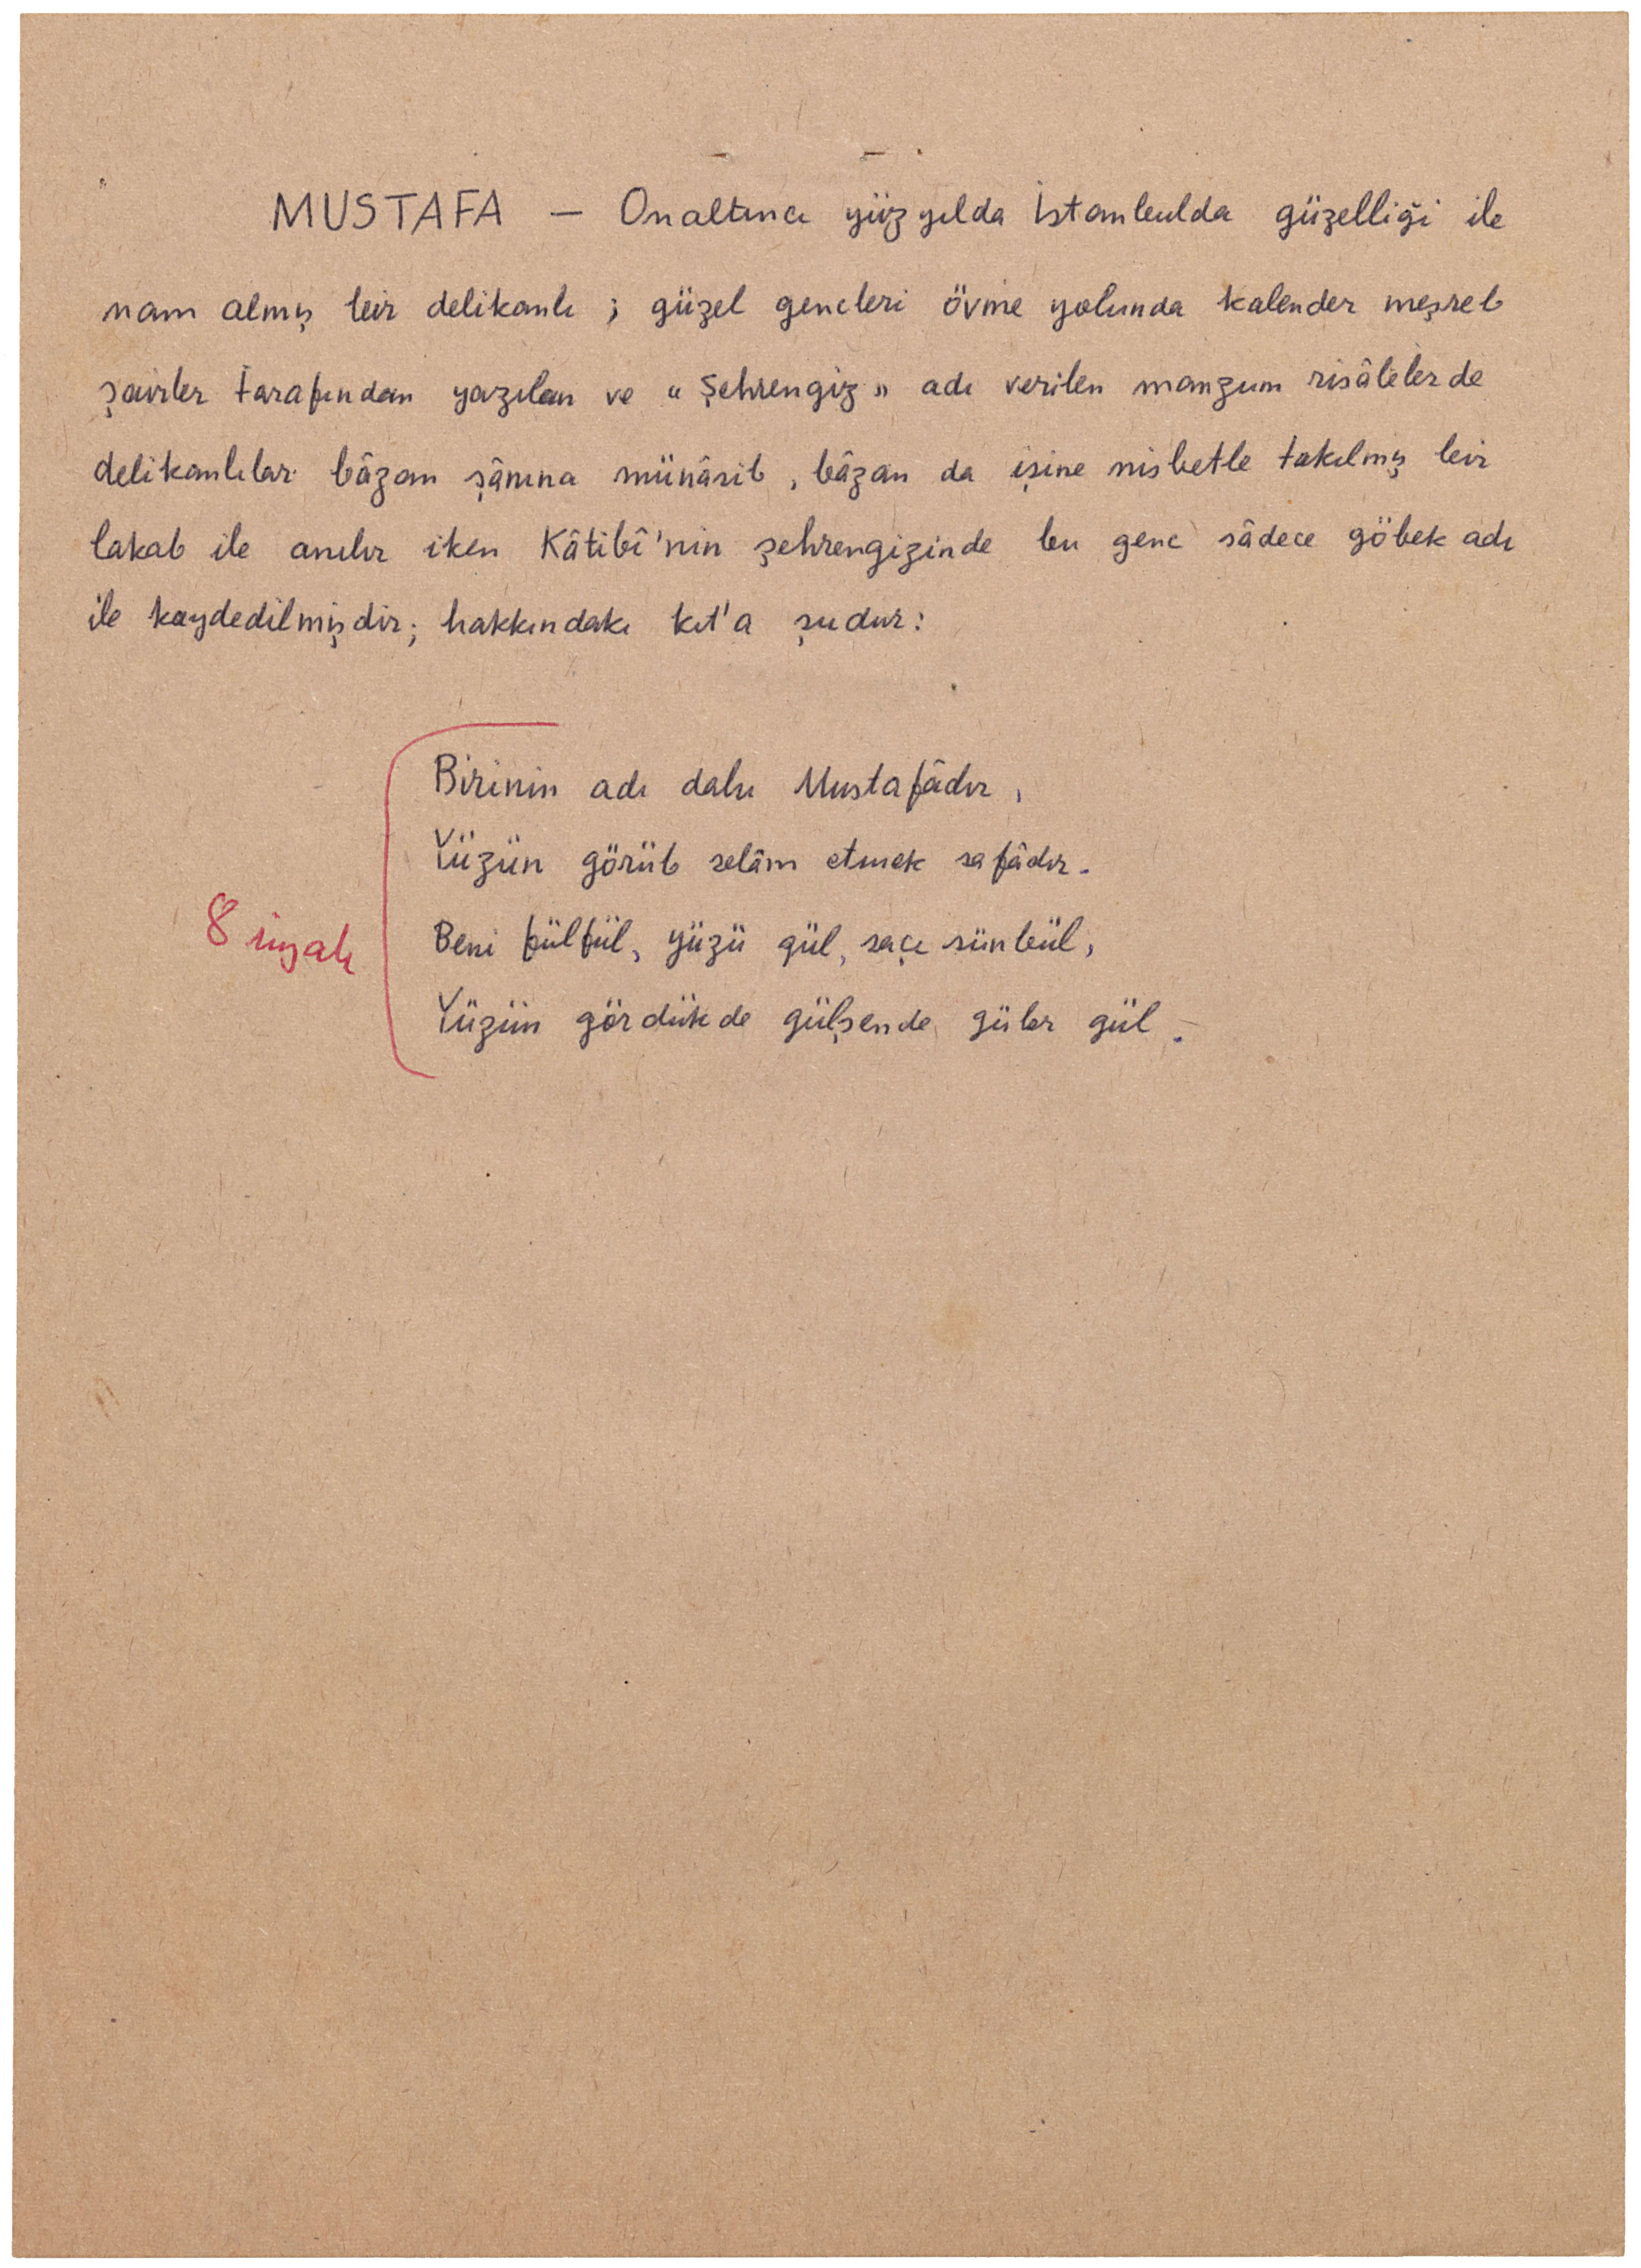 MUSTAFA — Onaltıncı yüzyılda İstanbulda güzelliği ile
nam almış bir delikanlı ; güzel gencleri övme yolunda kalender meşreb
şairler tarafından yazılan ve « Şehrengiz » adı verilen manzum risâlelerde
delikanlılar bâzan şânına münâsib , bâzan da işine nisbetle takılmış bir
lakab ile anılır iken Kâtibî'nin şehrengizinde bu genc sâdece göbek adı
ile kaydedilmişdir; hakkındakı kıt'a şudur:
Birinin adı dahı Mustafâdır ,
Yüzün görüb selâm etmek safâdır.
8 siyah
Beni fülfül, yüzü gül, saçı sünbül,
Yüzün gördükde gülşende güler gül .